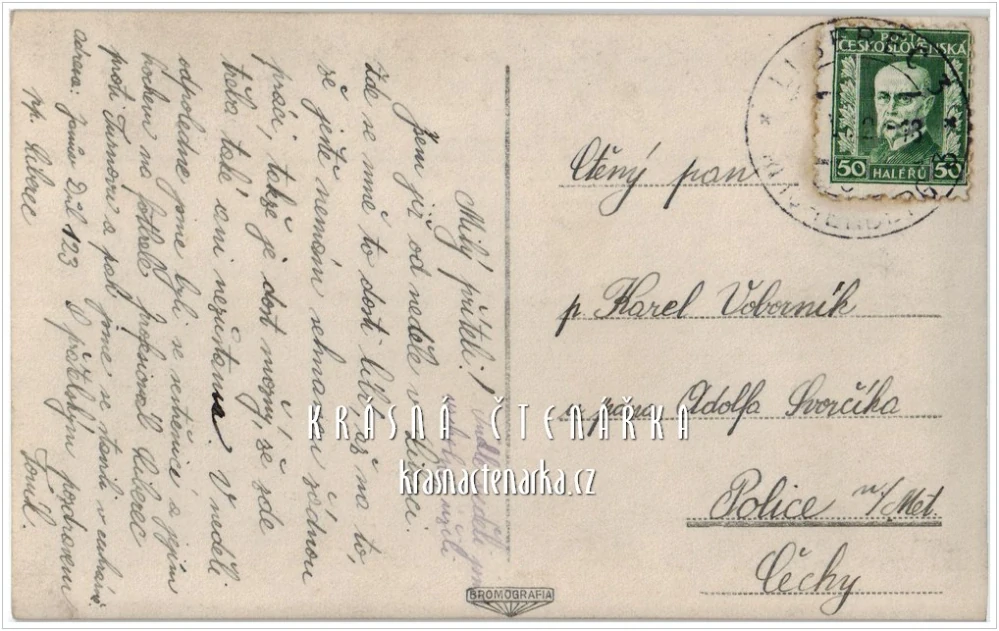 Milý příteli!
Jsem již od neděle v Liberci.
Zde se mně to dosti líbí, až na to,
že ještě nemám sehnanou řádnou
práci, takže je dost možný, že zde
třeba také ani nezůstanu. V neděli
odpoledne jsme byli se sestřenicí a jejím
hochem na footbale Profesionál Liberec
proti Turnovu a pak jsme se stavili v
adresa: Janův Důl 123 S přátelským pozdravem
np. Liberec Tomík.
POŠTA
ČESKOSLOVENSKÁ
50 HALÉŘŮ 50
LIBEREC 3
Ctěný pan
p. Karel Voborník
u pana Adolfa Svorčíka
Police n/Met.
Čechy
KRÁSNÁ ČTENÁŘKA
krasnactenarka.cz
BROMOGRAFIA